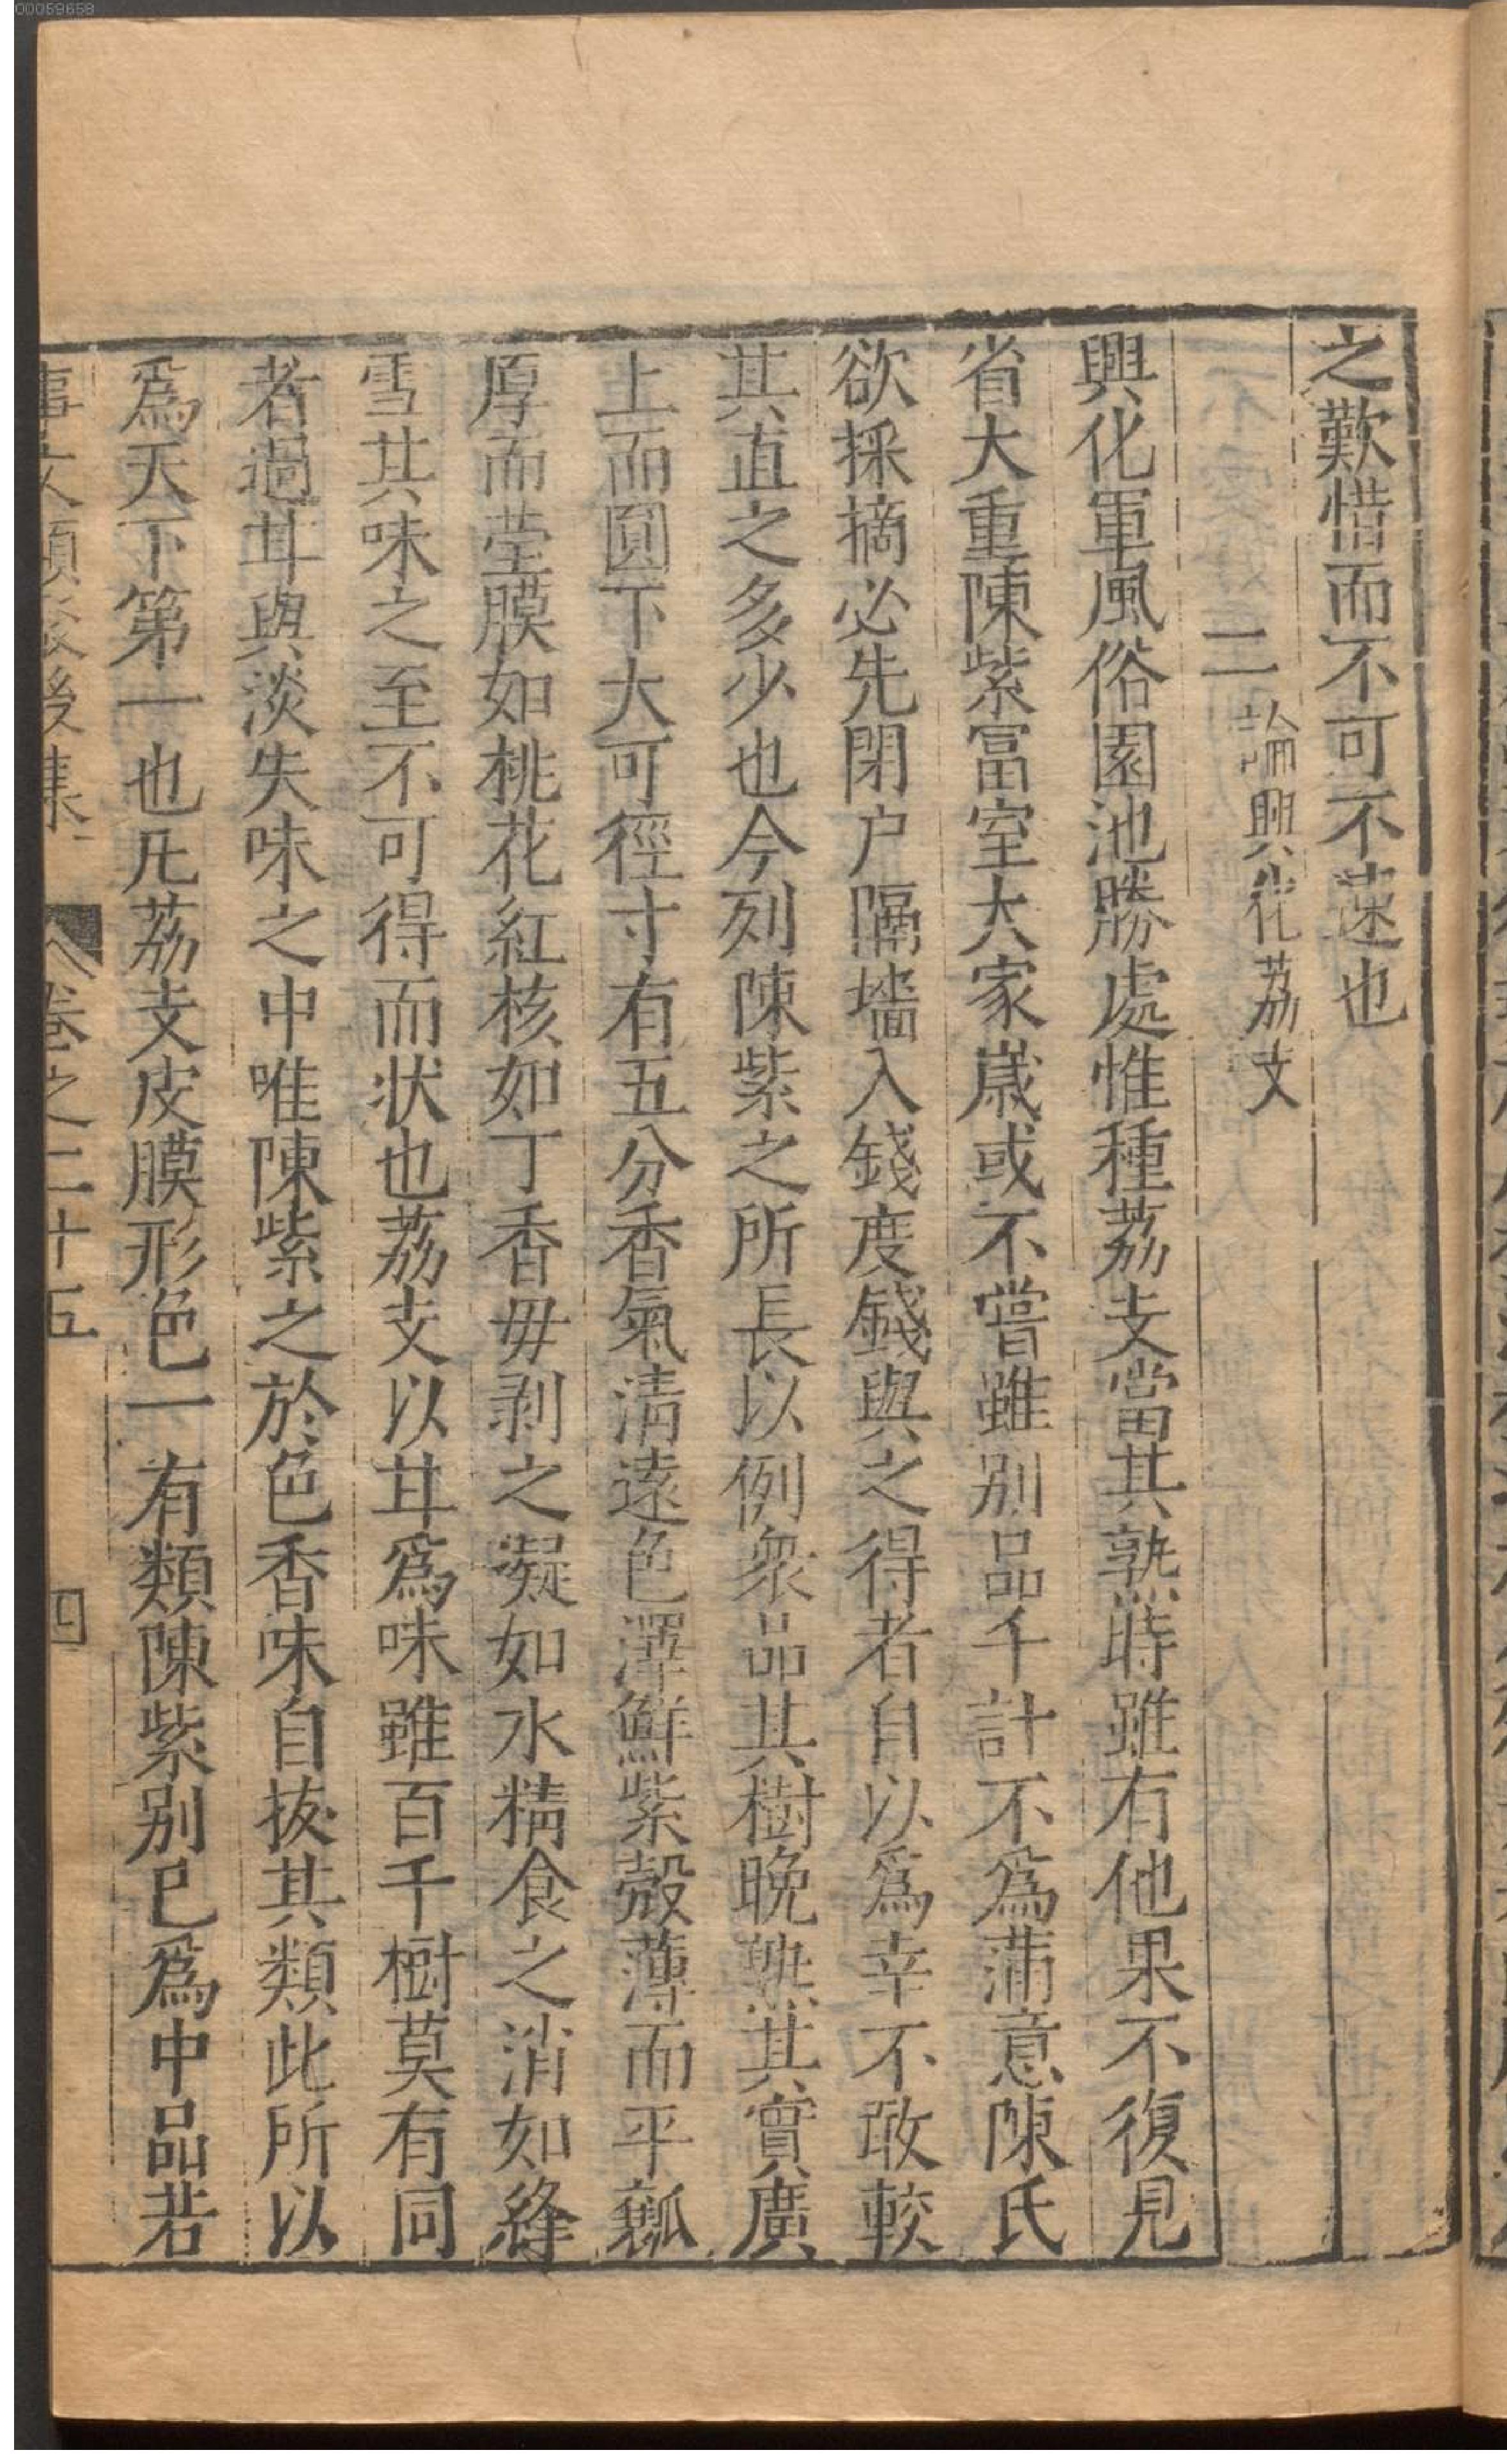 00059658
之歎惜而不可不速也
二 論興化荔支
興化軍風俗園池勝處惟種荔支當其熟時雖有他果不復見
省大重陳紫冨室大家歲或不嘗雖别品千計不爲蒲意陳氏
欲採摘必先閉户隔墻入錢度錢與之得者自以爲幸不敢較
其直之多少也今列陳紫之所長以例衆品其樹晚熟其實廣
上而圓下大可徑寸有五分香氣清遠色澤鮮紫殼薄而平瓤
厚而瑩膜如桃花紅核如丁香毋剥之凝如水精食之消如絳
雪其味之至不可得而状也荔支以甘爲味雖百千樹莫有同
者過甘與淡失味之中唯陳紫之於色香味自拔其類此所以
爲天下第一也凡荔支皮膜形色一有類陳紫别已爲中品若
事文類聚後集 卷之二十五 四